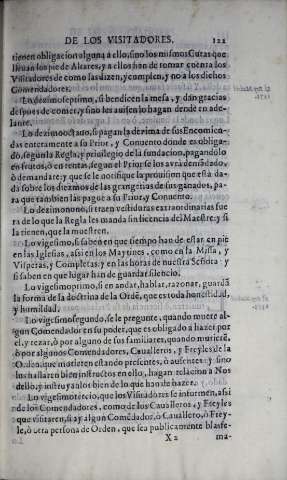 DE LOS VISITADORES. 122
tienen obligacion alguna a ello, sino los mismos Curas que
lleuan los pie de Altares, y a ellos han de tomar cuenta los
Visitadores de como las dizen, y complen, y no a los dichos
Comendadores.
Lo dezimoseptimo, si bendicen la mesa, y dan gracias
despues de comer, y sino les auisen lo hagan dende en ade-
lante.
Lo dezimooctauo, si pagan la dezima de sus Encomien-
das enteramente a su Prior, y Conuento donde es obliga-
do, segun la Regla, y priuilegio de la fundacion, pagandolo
en frutos, ò en rentas, segun el Prior se los aurà demãdado,
ò demandare; y que se le notifique la prouision que està da-
da sobre los diezmos de las grangerias de sus ganados, pa-
ra que tambien las pague a su Prior, y Conuento.
Lo dezimonono, si traen vestiduras extraordinarias fue
ra de lo que la Regla les manda sin licencia del Maestre; y si
la tienen, que la muestren.
Lo vigesimo, si saben en que tiempo han de estar en pie
en las Iglesias, assi en los Maytines, como en la Missa, y
Visperas, y Completas, y en las horas de nuestra Señora: y
si saben en que lugar han de guardar silencio.
Lo vigesimoprimo, si en andar, hablar, razonar, guardã
la forma de la doctrina de la Ordẽ, que es toda honestidad,
y humildad.
Lo vigesimosegundo, se le pregunte, quando muere al-
gun Comendador en su poder, que es obligado a hazer por
el, y rezar, ò por alguno de sus familiares, quando muriere,
ò por algunos Comendadores, Caualleros, y Freyles de la
Orden, que murieren estando presentes, ò ausentes: y sino
los hallaren bien instructos en ello, hagan relacion a Nos
dello, è instruyanlos bien de lo que han de hazer.
Lo vigesimotercio, que los Visitadores se informen, assi
de los Comendadores, como de los Caualleros, y Freyles
que visitaren, si ay algun Comẽdador, ò Cauallero, ò Frey-
le, ò otra persona de Orden, que sea publicamente blasfe-
X 2 ma-